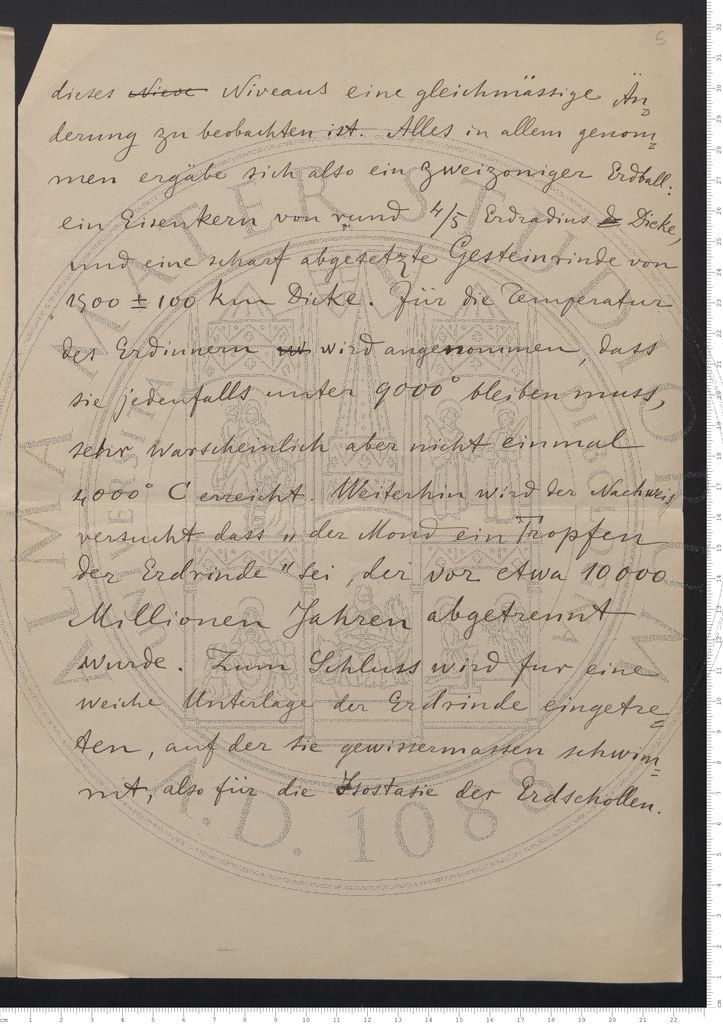 5
dieses Nieve Niveaus eine gleichmässige Än=
derung zu beobachten ist. Alles in allem genom=
men ergäbe sich also ein zweizoniger Erdball:
ein Eisenkern von rund 4/5 Erdradius Dicke,
und eine scharf abgesetzte Gesteinrinde von
1500 ± 100 km Dicke. Für die Temperatur
des Erdinnern wird angenommen, dass
sie jedenfalls unter 9000° bleiben muss,
sehr warscheinlich aber nicht einmal
4000° C erreicht. Weiterhin wird der Nachweis
versucht dass „der Mond ein Tropfen
der Erdrinde" sei, der vor etwa 10 000
Millionen Jahren abgetrennt
wurde. Zum Schluss wird fur eine
weiche Unterlage der Erdrinde eingetre=
ten, auf der sie gewissermassen schwim=
mt, also für die Isostasie der Erdschollen.
ALMA MATER STUDIORUM
A.D. 1088